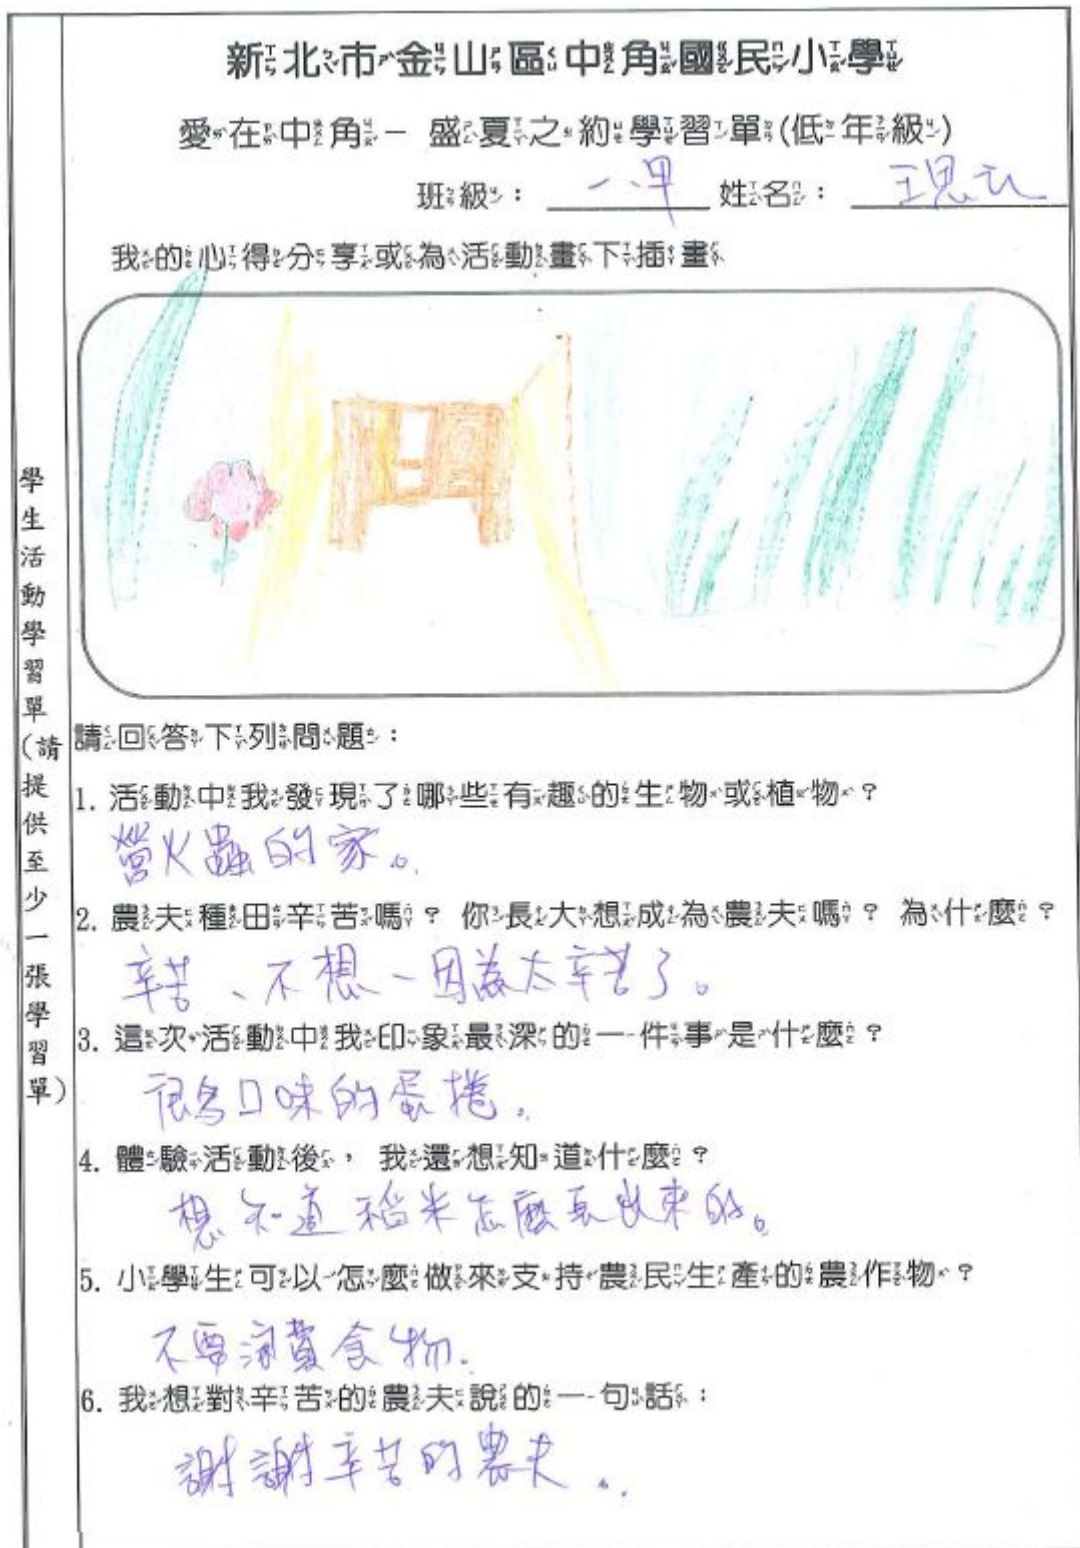 新北市金山區中角國民小學
愛在中角－盛夏之約學習單(低年級)
班級： 一甲 姓名： 王思
我的心得分享或為活動畫下插畫
學生活動學習單(請提供至少一張學習單)
請回答下列問題：
1. 活動中我發現了哪些有趣的生物或植物？
螢火蟲的家。
2. 農夫種田辛苦嗎？ 你長大想成為農夫嗎？ 為什麼？
辛苦、不想－因為太辛苦了。
3. 這次活動中我印象最深的一件事是什麼？
口味的蛋捲。
4. 體驗活動後， 我還想知道什麼？
想知道稻米怎麼長出來的。
5. 小學生可以怎麼做來支持農民生產的農作物？
不要浪費食物.
6. 我想對辛苦的農夫說的一句話：
謝謝辛苦的農夫。